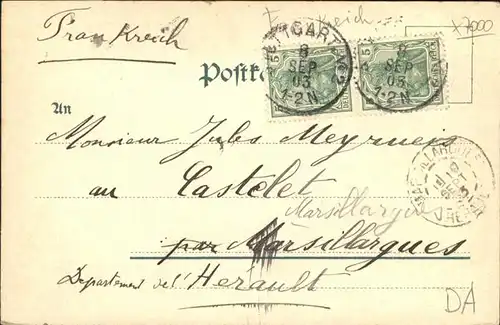 Frankreich
x7000
STUTTGART
8
SEP
03
1-2N.
8
SEP
03
1-2N
5 5
An
Monsieur Jules Meyrueis
au Castelet
Marsillargues
par Marsillargues
Departement de l'Herault
DA